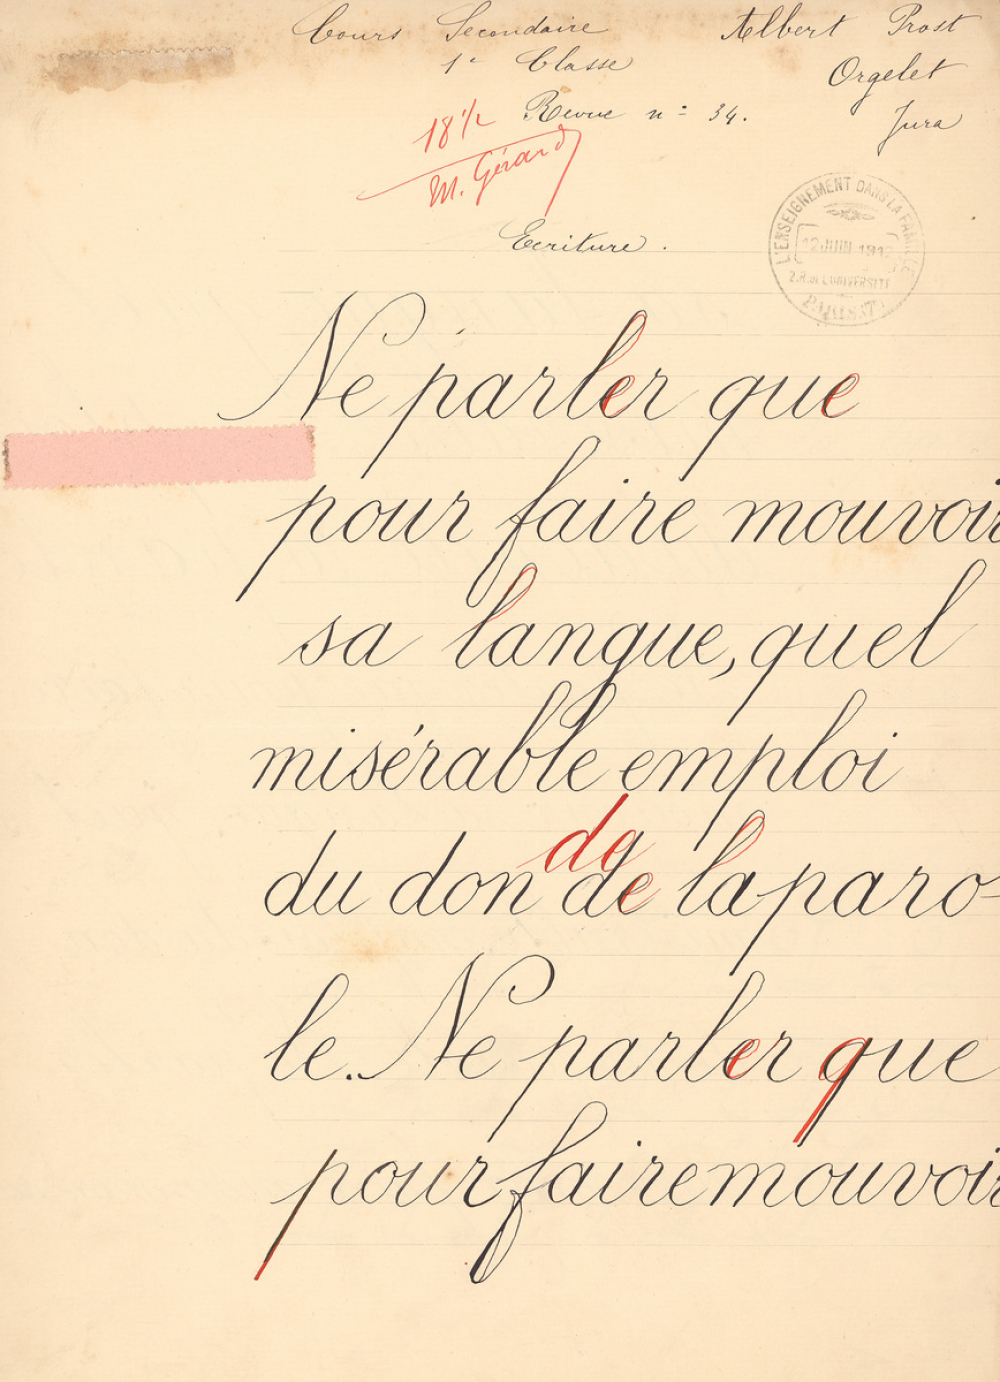 Cours Secondaire
Albert Prost
1e Classe
Orgelet
Revue n= 34.
Jura
18 1/2
M. Gérard
Ecriture.
L'ENSEIGNEMENT DANS LA FAMILLE
12 JUIN 1912
2. R. DE L'UNIVERSITÉ
PARIS
Ne parler que
pour faire mouvoir
sa langue, quel
misérable emploi
de
du don de la paro-
le. Ne parler que
pour faire mouvoir